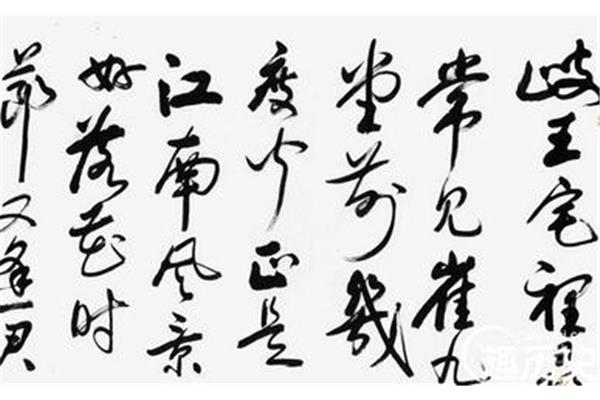 岐王宅裡
常见崔九
堂前幾
度闻正是
江南风景
好落花时
节又逢君
趣历史